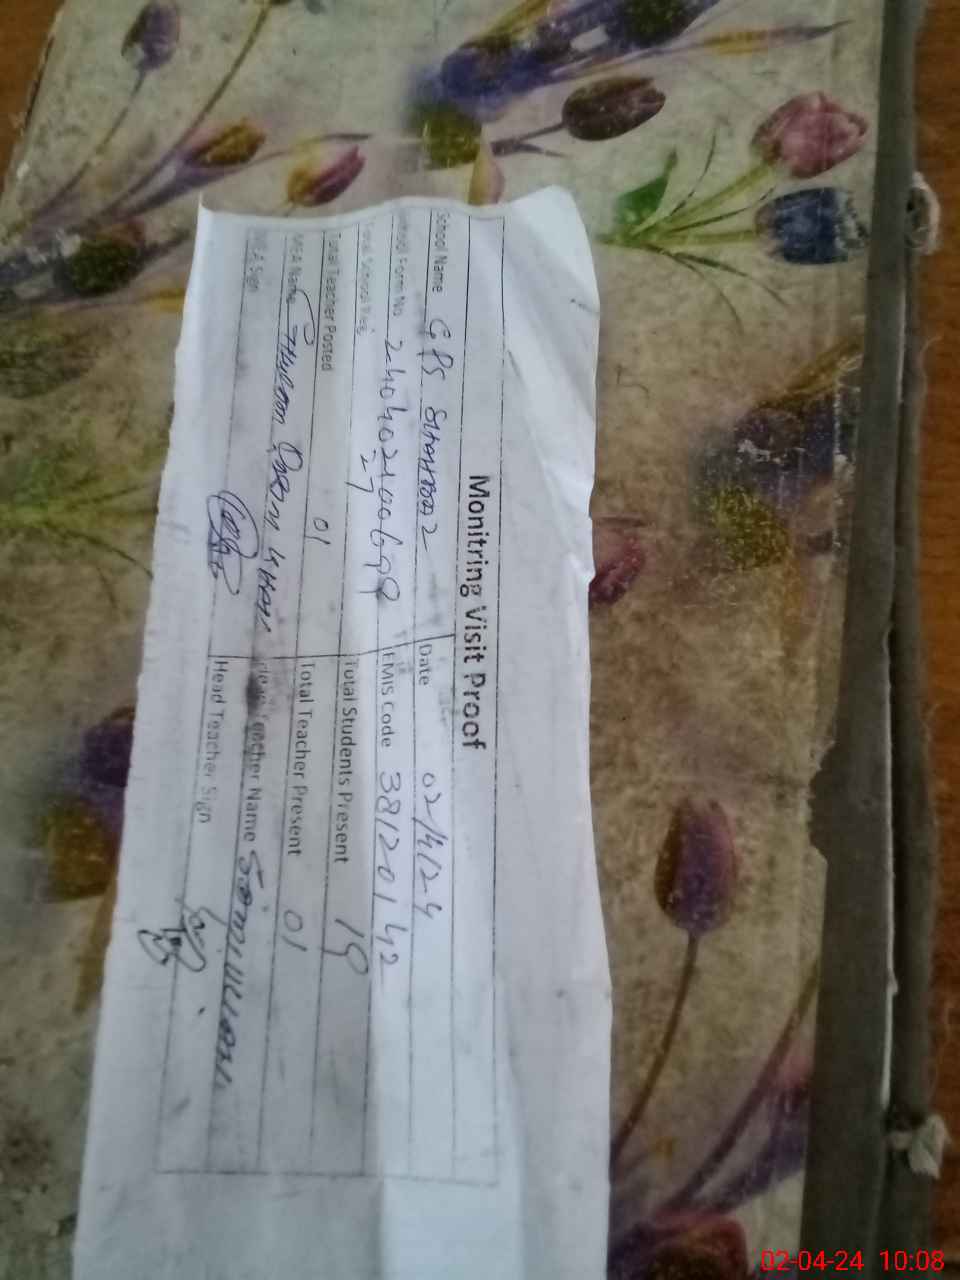 Monitring Visit Proof
School Name GPS Date 02/4/24
School Form No. 240402100699 EMIS Code 38120142
Total School Reg. 27 Total Students Present 19
Total Teacher Posted 01 Total Teacher Present 01
MEA Name Ghulam Khan Head Teacher Name
MEA Sign Head Teacher Sign
02-04-24 10:08